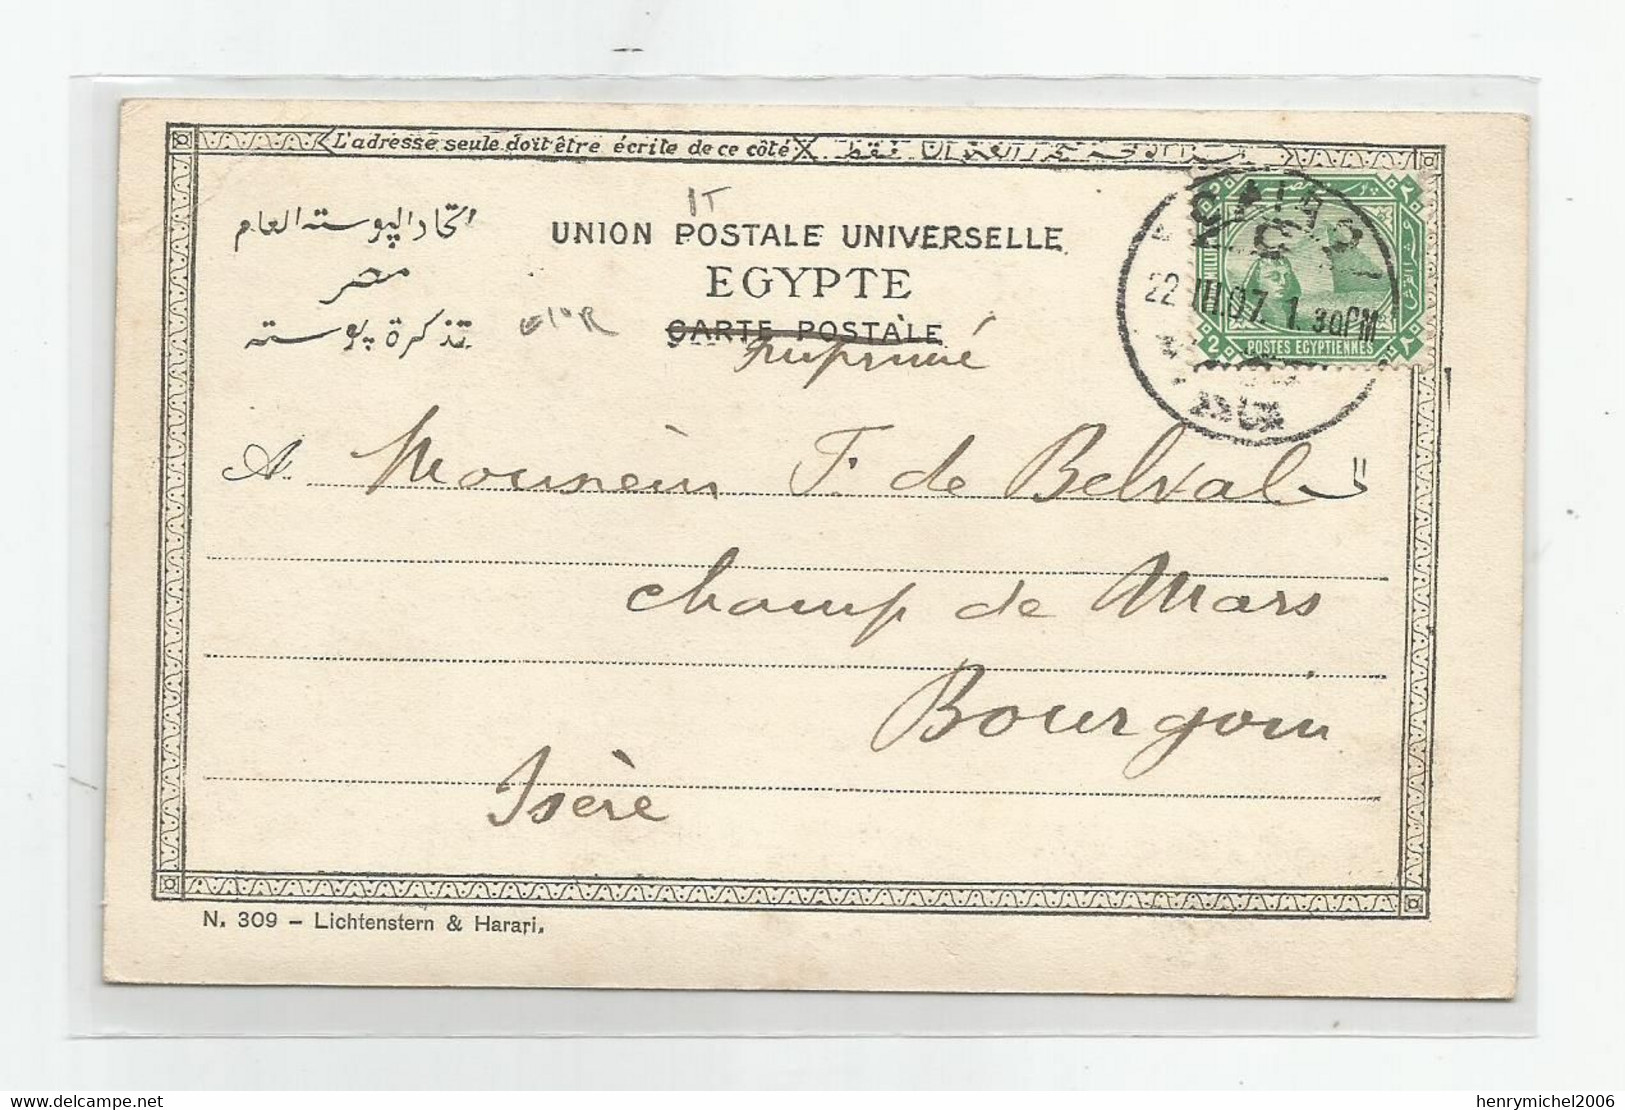 L'adresse seule doit être écrite de ce côté
اتحاد البوسته العام
مصر
تذكرة بوسته
1T
UNION POSTALE UNIVERSELLE
EGYPTE
CARTE POSTALE
Imprimé
CAIRO
22 III.07. 1.30PM
POSTES EGYPTIENNES
2
A Monsieur F. de Belval
Champ de Mars
Bourgoin
Isère
N. 309 – Lichtenstern & Harari.
www.delcampe.net
henrymichel2006